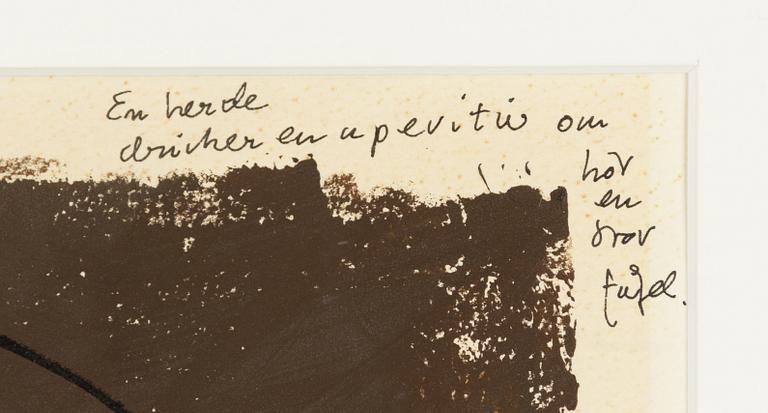 En herde
dricker en aperitiv om
hör
en
stor
fugl.